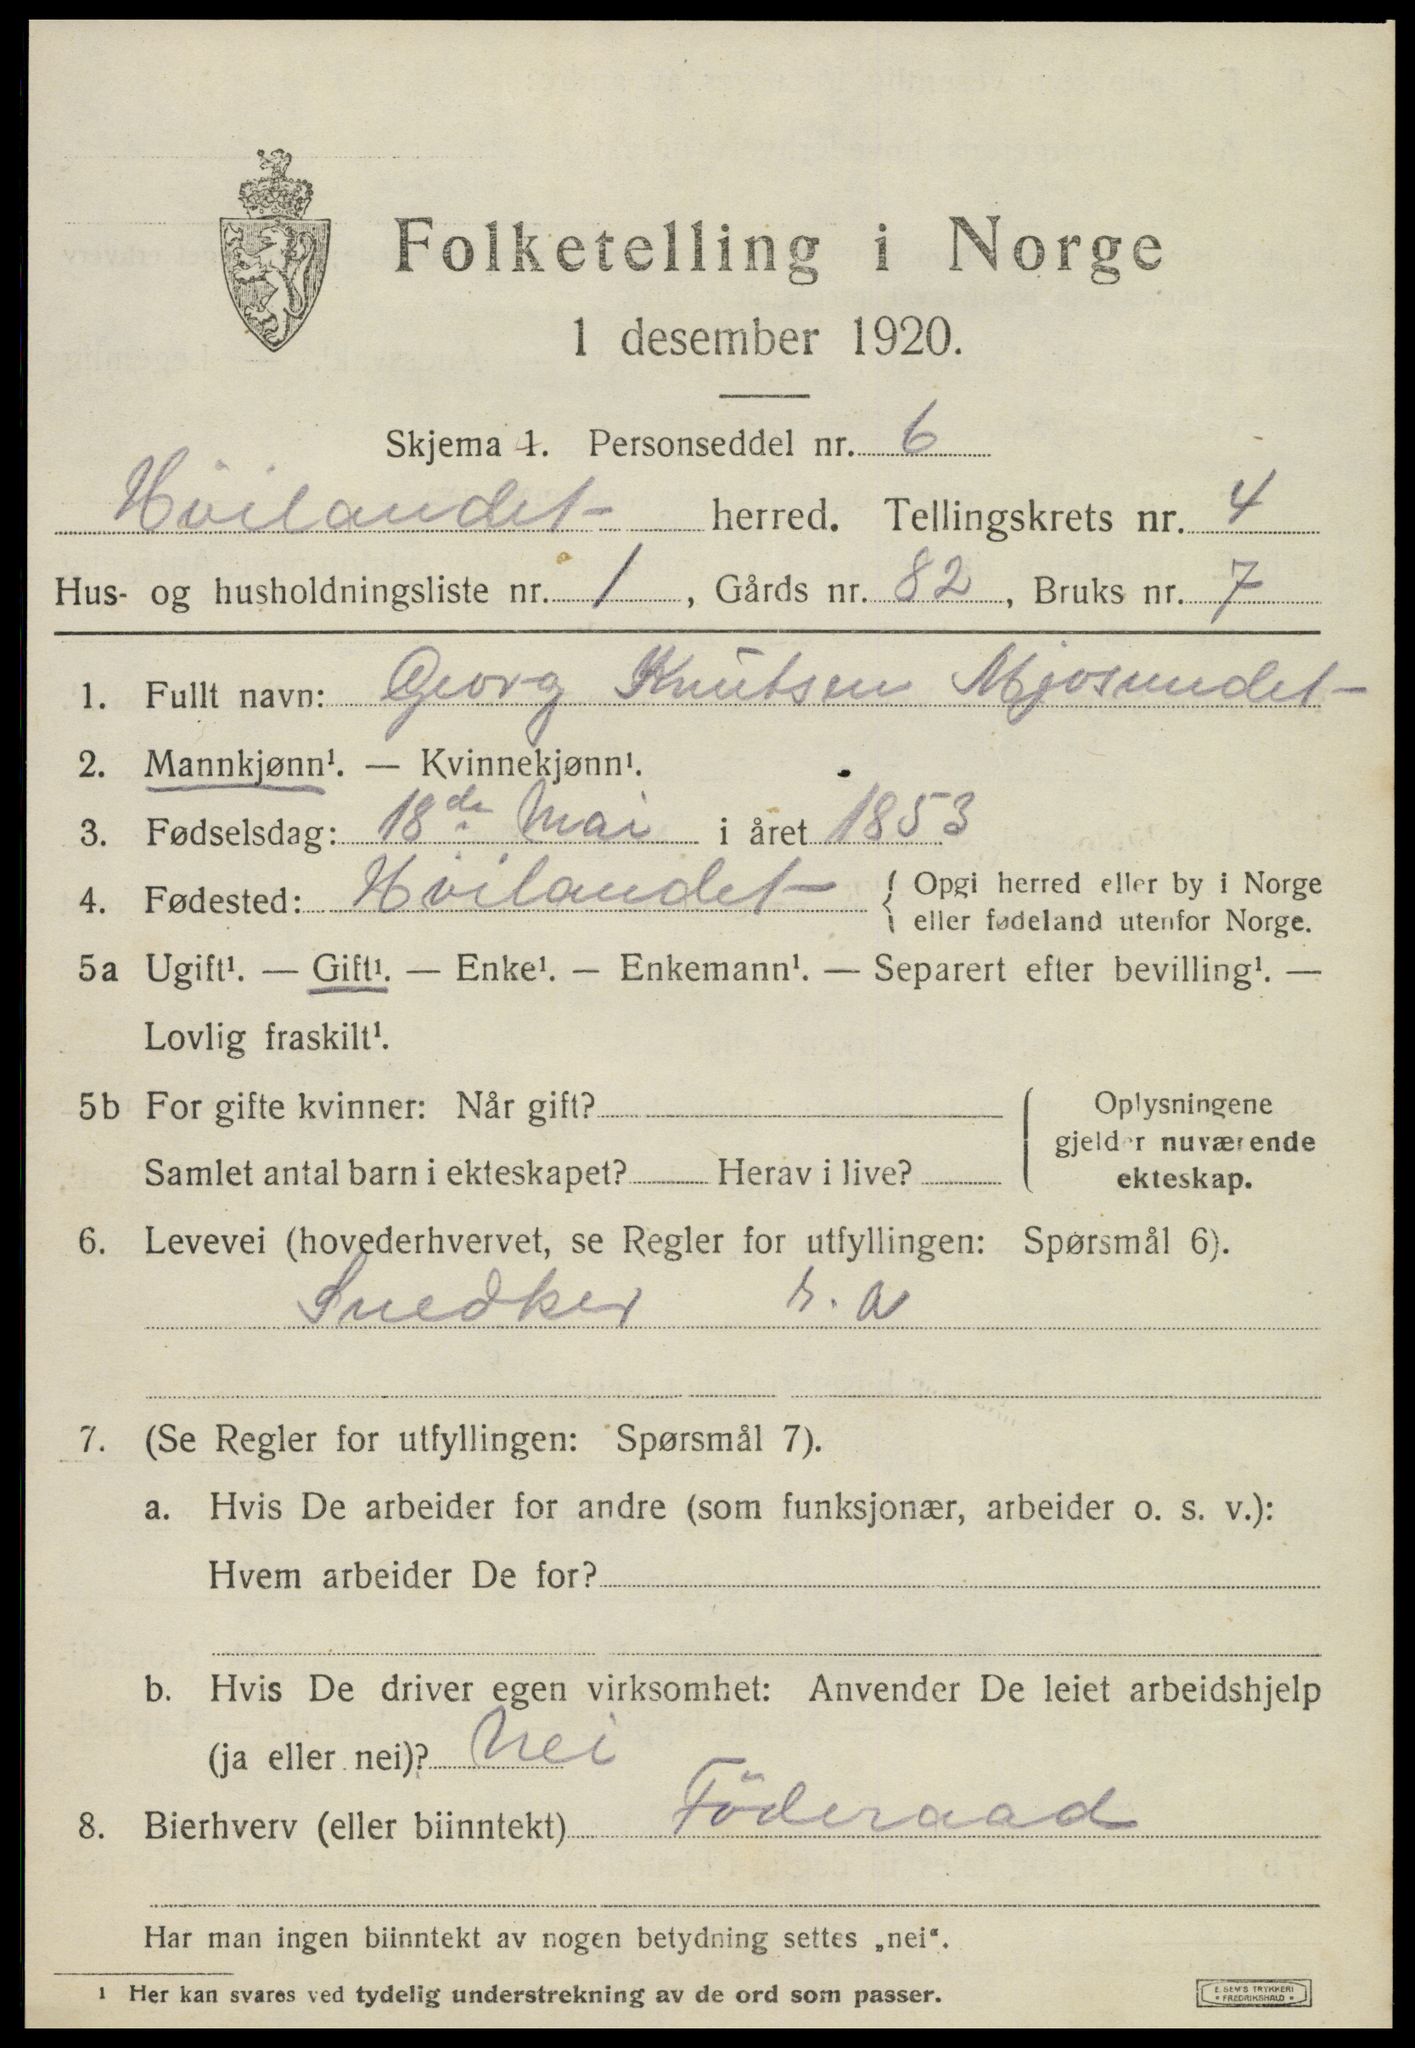 Folketelling i Norge
1 desember 1920.
Skjema 1. Personseddel nr. 6
Höilandet herred. Tellingskrets nr. 4
Hus- og husholdningsliste nr. 1, Gårds nr. 82, Bruks nr. 7
1. Fullt navn: Georg Knutsen Mjosundet
2. Mannkjønn¹. — Kvinnekjønn¹.
3. Fødselsdag: 18de Mai i året 1853
4. Fødested: Höilandet { Opgi herred eller by i Norge
eller fødeland utenfor Norge.
5a Ugift¹. — Gift¹. — Enke¹. — Enkemann¹. — Separert efter bevilling¹. —
Lovlig fraskilt¹.
5b For gifte kvinner: Når gift?
Samlet antal barn i ekteskapet? Herav i live?
Oplysningene
gjelder nuværende
ekteskap.
6. Levevei (hovederhvervet, se Regler for utfyllingen: Spørsmål 6).
Snedker
7. (Se Regler for utfyllingen: Spørsmål 7).
a. Hvis De arbeider for andre (som funksjonær, arbeider o. s. v.):
Hvem arbeider De for?
b. Hvis De driver egen virksomhet: Anvender De leiet arbeidshjelp
(ja eller nei)? Nei
8. Bierhverv (eller biinntekt) Föderaad
Har man ingen biinntekt av nogen betydning settes „nei“.
¹ Her kan svares ved tydelig understrekning av de ord som passer.
E. SEM'S TRYKKERI
* FREDRIKSHALD *